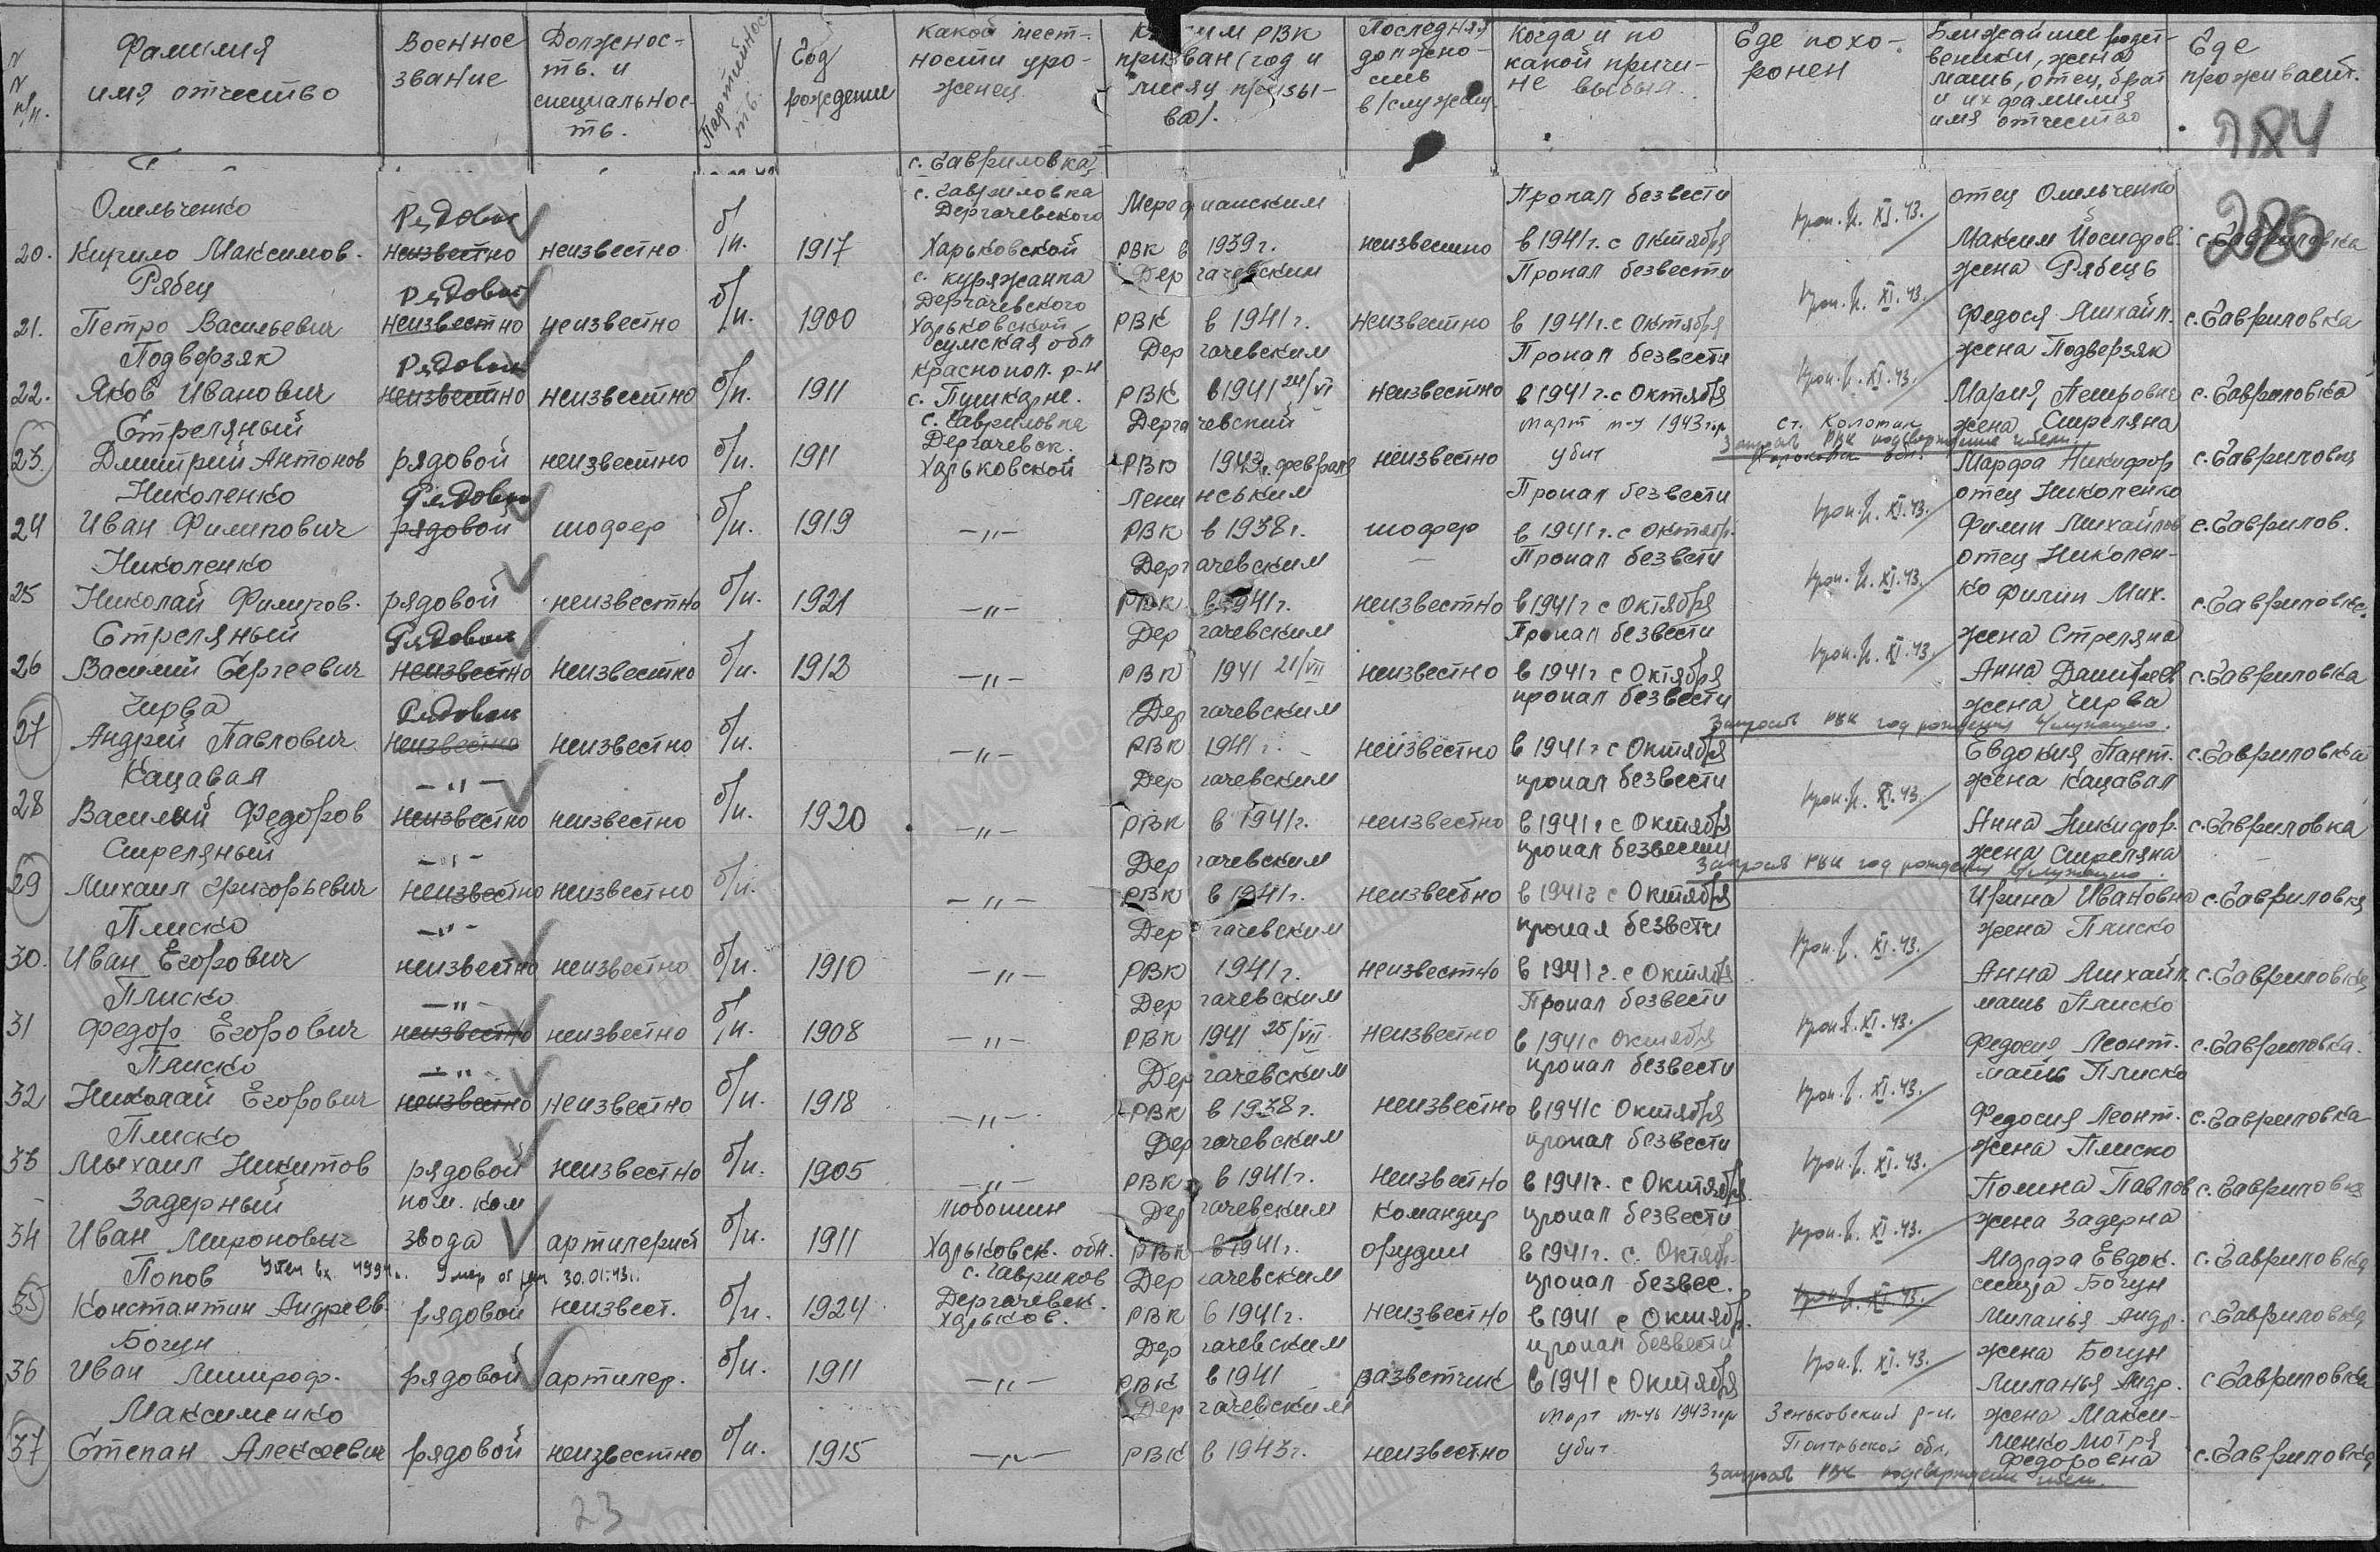 N N п/п. Фамилия имя, отчество Военное звание Должность. и специальность. Партийность. Год рождение какой местности уроженец Каким РВК призван (год и месяц призыва). Последняя должность в/служащ. Когда и по какой причине выбыл. Где похоронен Ближайшие родственики, жена мать, отец, брат и их фамилия имя отчество Где проживает.
с. Гавриловка
280
20. Омельченко Кирило Максимов. Рядовой неизвестно неизвестно б/п. 1917 с. Гавриловка Дергачевского Харьковской РВК в 1939 г. неизвестно Пропал безвести в 1941 г. с Октября проп. б. XI.43. отец Омельченко Максим Иосифов. с. Гавриловка
21. Рябец Петро Васильевич Рядовой неизвестно неизвестно б/п. 1900 с. куряжанка Дергачевского Харьковской Дергачевским РВК в 1941 г. неизвестно Пропал безвести в 1941 г. с Октября проп. б. XI.43. жена Рябець Федося Михайл. с. Гавриловка
22. Подверзяк Яков Иванович Рядовой неизвестно неизвестно б/п. 1911 сумская обл Краснопол. р-н с. Пушкарне. Дергачевским РВК в 1941 24/VI неизвестно Пропал безвести в 1941 г. с Октября проп. б. XI.43. жена Подверзяк Мария Петровна с. Гавриловка
23. Стреляный Дмитрий Антонов рядовой неизвестно б/п. 1911 с. Гавриловка Дергачевск. Харьковской Дергачевский РВК 1943 г. февраля неизвестно март м-ц 1943 г. убит ст. Колотик Харьковск. обл. жена Стреляна Марфа Никифор с. Гавриловка
24 Николенко Иван Филипович Рядовой рядовой шофер б/п. 1919 —"— Ленинським РВК в 1938 г. шофер Пропал безвести в 1941 г. с Октябр. проп. б. XI.43. отец Николенко Филип Михайлов с. Гаврилов.
25 Николенко Николай Филипов. рядовой неизвестно б/п. 1921 —"— Дергачевским РВК в 1941 г. неизвестно Пропал безвести в 1941 г с Октября проп. б. XI.43. отец Николенко Филип Мих. с. Гавриловка
26 Стреляный Василий Сергеевич Рядовой неизвестно неизвестно б/п. 1912 —"— Дергачевским РВК 1941 21/VII неизвестно Пропал безвести в 1941 г с Октября проп. б. XI.43. жена Стреляна Анна Дмитриев с. Гавриловка
27 Чирва Андрей Павлович Рядовой неизвестно неизвестно б/п. —"— Дергачевским РВК 1941 г. неизвестно пропал безвести в 1941 г с Октября Запросить РВК год рождения в/служащего. жена Чирва Евдокия Пант. с. Гавриловка
28 Кацавал Василий Федоров —"— неизвестно неизвестно б/п. 1920 —"— Дергачевским РВК в 1941 г. неизвестно пропал безвести в 1941 г с Октября проп. б. XI.43. жена Кацавал Анна Никифор. с. Гавриловка
29 Стреляный Михаил Григорьевич —"— неизвестно неизвестно б/п. —"— Дергачевским РВК в 1941 г. неизвесбно пропал безвести в 1941 г с Октября Запросить РВК год рождения в/служащего. жена Стреляна Ирина Ивановна с. Гавриловка
30. Плиско Иван Егорович —"— неизвестно неизвестно б/п. 1910 —"— Дергачевским РВК 1941 г. неизвестно пропал безвести в 1941 г. с Октября проп. б. XI.43. жена Плиско Анна Михайл. с. Гавриловка
31 Плиско Федор Егорович —"— неизвестно неизвестно б/п. 1908 —"— Дергачевским РВК 1941 25/VII неизвестно Пропал безвести в 1941 с Октября проп. б. XI.43. мать Плиско Федосия Леонт. с. Гавриловка.
32 Плиско Николай Егорович —"— неизвестно неизвестно б/п. 1918 —"— Дергачевским РВК в 1938 г. неизвестно пропал безвести в 1941 с Октября проп. б. XI.43. мать Плиско Федосия Леонт. с. Гавриловка
33 Плиско Мыхаил Никитов рядовой неизвестно б/п. 1905 —"— Дергачевским РВК в 1941 г. неизвестно пропал безвести в 1941 г. с Октября проп. б. XI.43. жена Плиско Полина Павлов с. Гавриловка
34 Задерный Иван Миронович пом. ком звода артилерист б/п. 1911 Люботин Харьковск. обл. Дергачевским РВК в 1941 г. Командир орудии пропал безвести в 1941 г. с. Октябр. проп. б. XI.43. жена Задерна Марфа Евдок. с. Гавриловка
35 Попов Константин Андреев. Умер от ран 30.01.43 г. рядовой неизвест. б/п. 1924 с. Гаврилов Дергачевск. Харьков. Дергачевским РВК в 1941 г. неизвестно пропал безвес. в 1941 с Октябр. проп. б. XI.43. сестра Богун Миланья Андр. с. Гавриловка
36 Богун Иван Митроф. рядовой артилер. б/п. 1911 —"— Дергачевским РВК в 1941 разветчик пропал безвести в 1941 с Октября проп. б. XI.43. жена Богун Миланья Андр. с Гавриловка
37 Максименко Степан Алексеевич рядовой неизвестно б/п. 1915 —"— Дергачевским РВК в 1943 г. неизвестно март м-ць 1943 г. убит Зеньковский р-н. Полтавской обл. жена Максименко Мотря Федоровна с. Гавриловка
23